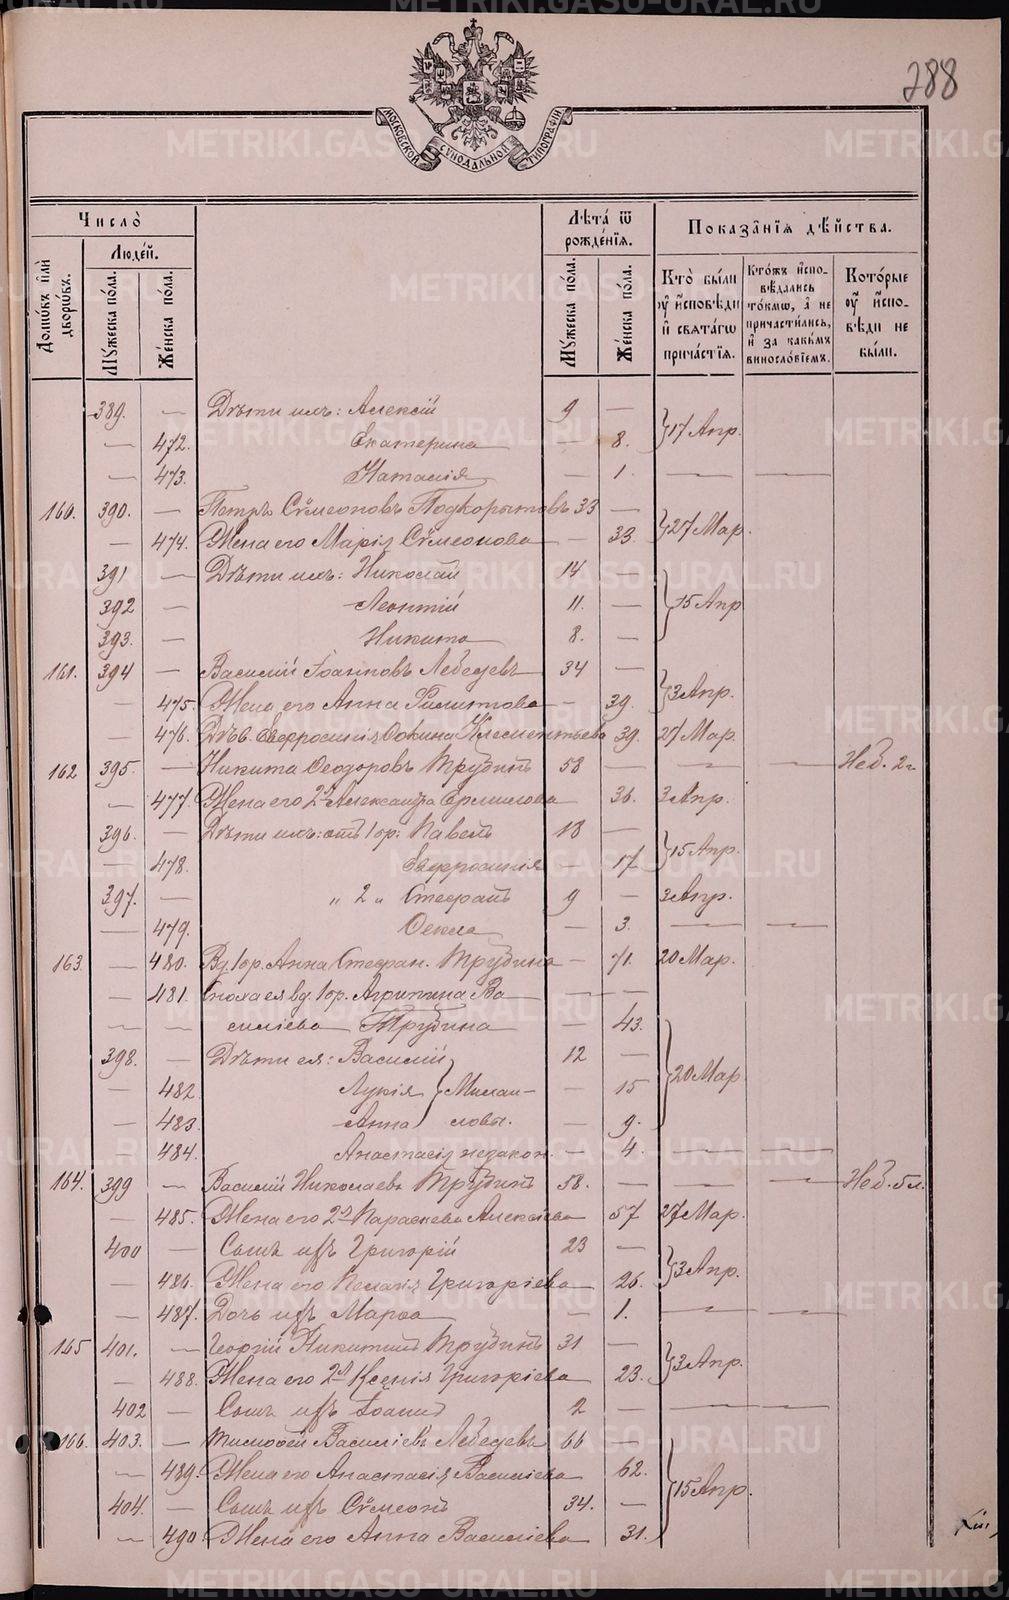 288
МОСКОВСКОЙ СѴНОДАЛЬНОЙ ТИПОГРАФІИ
Число̀
Домѡ́въ и҆лѝ дворѡ́въ.
Люде́й.
Мꙋ́жеска по́ла.
Же́нска по́ла.
Лѣ̑та ѿ рожде́нїѧ.
Мꙋ́жеска по́ла.
Же́нска по́ла.
Показа̑нїѧ дѣ́йства.
Кто̀ бы́ли ᲂу҆ и҆́сповѣди и҆ свѧта́гѡ прича́стїѧ.
Кто́жъ и҆сповѣ́дались то́кмѡ, а҆ не причасти́лись, и҆ за каки́мъ винослѡ́вїемъ.
Кото́рые ᲂу҆ и҆́сповѣди не бы́ли.
389. — Дѣти ихъ: Алексій 9 — } 17 Апр.
— 472. Екатерина — 8.
— 473. Наталія — 1. — —
160. 390. — Петръ Сѵмеоновъ Подкорытовъ 33 — } 27 Мар.
— 474. Жена его Марія Сѵмеонова — 33.
391 — Дѣти ихъ: Николай 14 — } 15 Апр
392 — Леонтій 11. —
393. — Никита 8. —
161. 394 — Василій Іоанновъ Лебедевъ 34 — } 3 Апр.
— 475. Жена его Анна Филиппова — 39.
— 476. Дѣв. Евфросинія Клементьева 39. 27 Мар.
162 395. — Никита Ѳеодоровъ Трубинъ 58 — — — Неб. 2 г.
— 477. Жена его 2я Александра Ермилова 36. 3 Апр.
396. — Дѣти ихъ: отъ 1 бр: Павелъ 18 — } 15 Апр.
— 478. Евфросинія — 17
397. — „ 2 „ Стефанъ 9 — 3 Апр.
— 479. Ѳекла — 3. — —
163 — 480. Вд. 1 бр. Анна Стефан. Трубина — 71. 20 Мар.
— 481. Сноха ея вд. 1 бр. Агрипина Ва — —
— — силіева Трубина — 43. } 20 Мар
398. — Дѣти ея: Василій 12 —
— 482. Лукія } Михаи- — 15
— 483. Анна ловы. — 9.
— 484. Анастасія незакон. — 4. — —
164. 399 — Василій Николаевъ Трубинъ 58. — — — Неб. 5 л.
— 485. Жена его 2я Параскева Алексіева 57 27 Мар.
400 — Сынъ ихъ Григорій 23 — } 3 Апр.
— 486. Жена его Пелагія Григоріева 26.
— 487. Дочь ихъ Марѳа — 1. — —
165 401. — Георгій Никитинъ Трубинъ 31 — } 3 Апр.
— 488. Жена его 2я Ксенія Григоріева 23.
402 — Сынъ ихъ Іоаннъ 2 — — —
166. 403. — Тимоѳей Василіевъ Лебедевъ 66 — } 15 Апр.
— 489. Жена его Анастасія Василіева 62.
404. — Сынъ ихъ Сѵмеонъ 34. —
— 490 Жена его Анна Василіева 31.